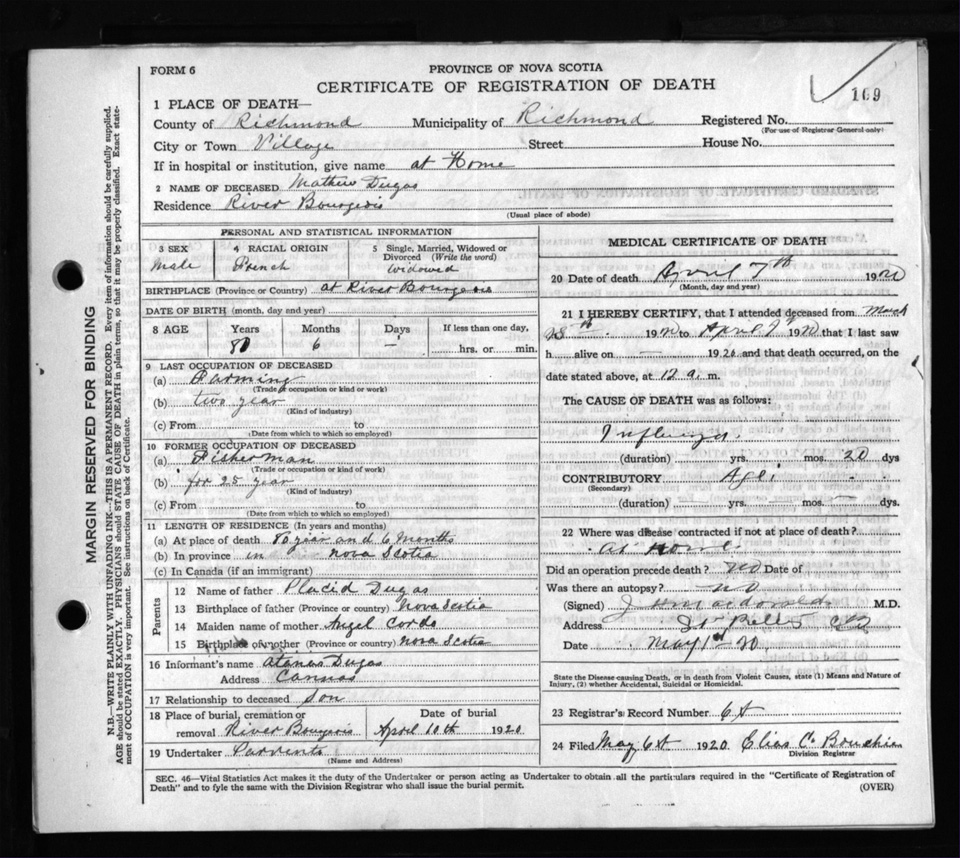 FORM 6
PROVINCE OF NOVA SCOTIA
CERTIFICATE OF REGISTRATION OF DEATH
169
1 PLACE OF DEATH—
County of Richmond Municipality of Richmond Registered No.
(For use of Registrar General only)
City or Town Village Street House No.
If in hospital or institution, give name at Home
2 NAME OF DECEASED Mathew Dugas
Residence River Bourgeois
(Usual place of abode)
PERSONAL AND STATISTICAL INFORMATION
3 SEX 4 RACIAL ORIGIN 5 Single, Married, Widowed or Divorced (Write the word)
male French widowed
BIRTHPLACE (Province or Country) at River Bourgeois
DATE OF BIRTH (month, day and year)
8 AGE Years Months Days If less than one day,
80 6 — hrs. or min.
9 LAST OCCUPATION OF DECEASED
(a) Farming
(Trade or occupation or kind or work)
(b) two year
(Kind of industry)
(c) From to
(Date from which to which so employed)
10 FORMER OCCUPATION OF DECEASED
(a) Fisherman
(Trade or occupation or kind of work)
(b) for 25 year
(Kind of industry)
(c) From to
(Date from which to which so employed)
11 LENGTH OF RESIDENCE (In years and months)
(a) At place of death 80 year and 6 months
(b) In province in nova Scotia
(c) In Canada (if an immigrant)
Parents
12 Name of father Placid Dugas
13 Birthplace of father (Province or country) Nova Scotia
14 Maiden name of mother Angel Corde
15 Birthplace of mother (Province or country) Nova Scotia
16 Informant's name Dugas
Address Cannas
17 Relationship to deceased Son
18 Place of burial, cremation or removal River Bourgeois
Date of burial
April 10th 1920
19 Undertaker Parvents
(Name and Address)
MEDICAL CERTIFICATE OF DEATH
20 Date of death April 7th 1920
(Month, day and year)
21 I HEREBY CERTIFY, that I attended deceased from March
1920 to April 7 1920 that I last saw
h alive on — 1920 and that death occurred, on the
date stated above, at 12 a. m.
The CAUSE OF DEATH was as follows:
Influenza.
(duration) yrs. mos. 20 dys
CONTRIBUTORY Age.
(Secondary)
(duration) yrs. mos. — dys.
22 Where was disease contracted if not at place of death?
at home
Did an operation precede death? no Date of
Was there an autopsy? no
(Signed) M.D.
Address St Peters CB
Date May 1st 20.
State the Disease causing Death, or in death from Violent Causes, state (1) Means and Nature of
Injury, (2) whether Accidental, Suicidal or Homicidal.
23 Registrar's Record Number 6t
24 Filed May 6t 1920 Elias C.
Division Registrar
SEC. 46—Vital Statistics Act makes it the duty of the Undertaker or person acting as Undertaker to obtain all the particulars required in the "Certificate of Registration of
Death" and to fyle the same with the Division Registrar who shall issue the burial permit.
(OVER)
MARGIN RESERVED FOR BINDING
N.B.—WRITE PLAINLY WITH UNFADING INK—THIS IS A PERMANENT RECORD. Every item of information should be carefully supplied.
AGE should be stated EXACTLY. PHYSICIANS should STATE CAUSE OF DEATH in plain terms, so that it may be properly classified. Exact state-
ment of OCCUPATION is very important. See instructions on back of Certificate.